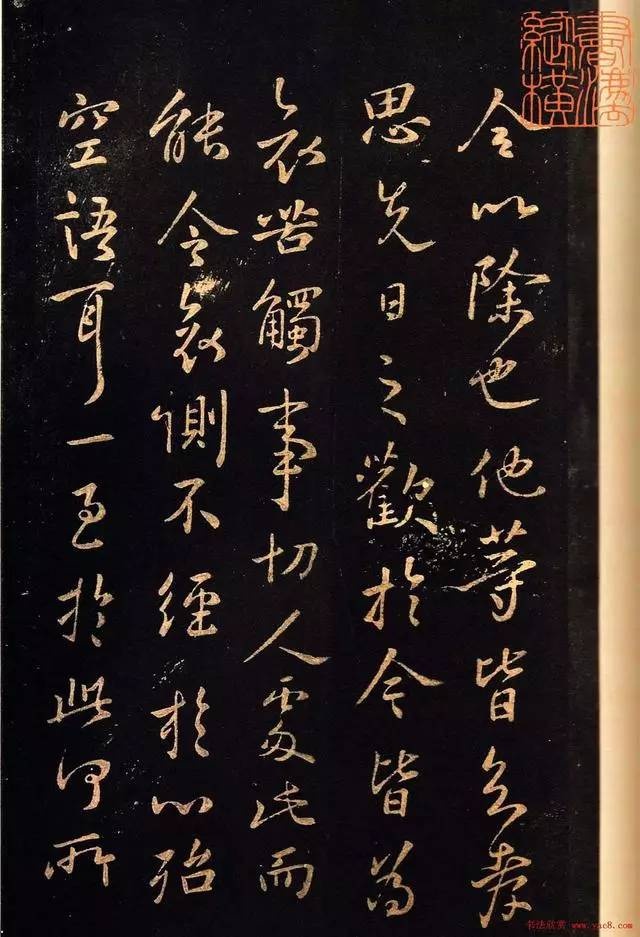 今以除也他等皆至孝
思先日之歡於今皆為
哀苦觸事切人處此而
能令哀惻不經於心殆
空語耳一至於此何所
书法欣赏 www.yac8.com